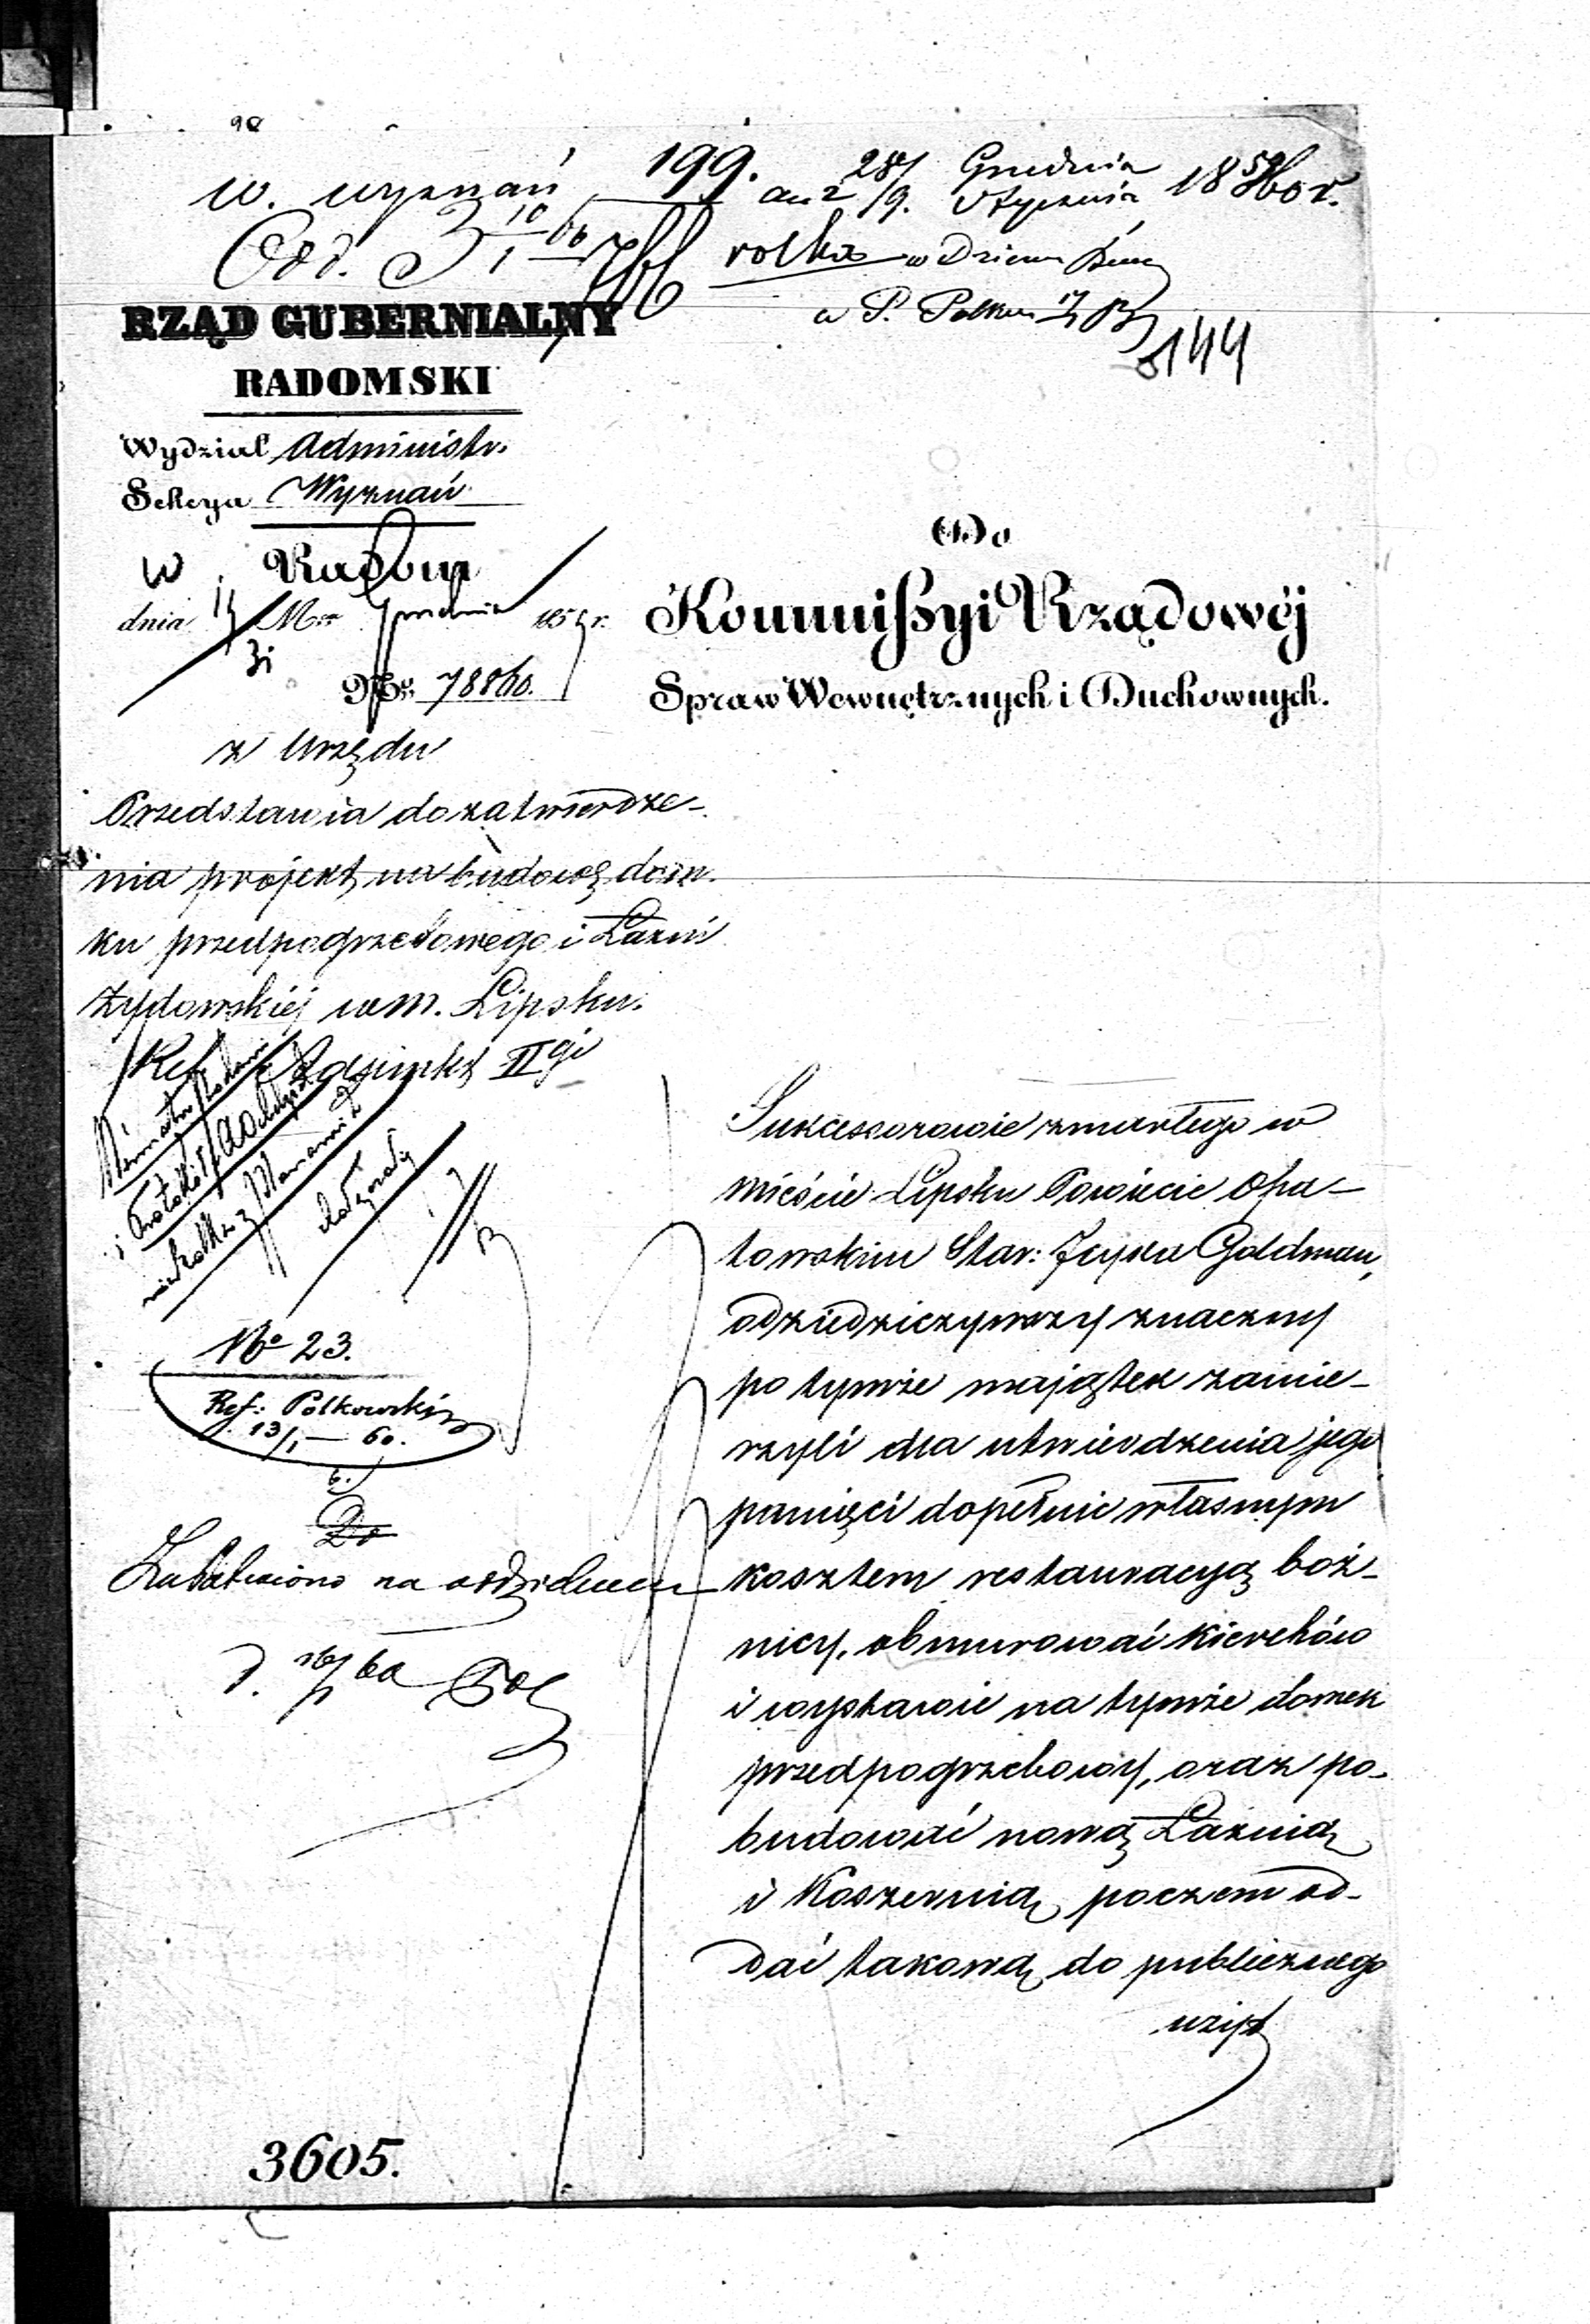 98
w. wyznań 199. 28/9. Grudnia Stycznia 1859/60 r.
Odd. 3 10/1 60 rolka w Dzien
a P. Polkow
144
RZĄD GUBERNIALNY
RADOMSKI
Wydział Administr.
Sekcya Wyznań
w Radom
dnia 19/31 Mca Grudnia 1859 r.
No 78860.
z Urzędu
Przedstawia do zatwierdze-
nia projekt na budowę dom-
ku przedpogrzebowego i Łaźni
Żydowskiej w m. Lipsku.
Ref. IIgi
No 23.
Ref: Polkowski
13/1 — 60.
Do
na
d. 16/1 60
3605.
Do
Kommissyi Rządowéj
Spraw Wewnętrznych i Duchownych.
Sukcessorowie zmarłego w
mieście Lipsku Powiecie Opa-
towskim Star: Icyka Goldman,
odziedziczywszy znaczny
po tymże majątek zamie-
rzyli dla utwierdzenia jego
pamięci dopełnić własnym
kosztem restauracyą boż-
nicy, obmurować kierchów
i wystawić na tymże domek
przedpogrzebowy, oraz po-
budować nową Łaźnią
i Koszernią poczem od-
dać takową do publicznego
użyt